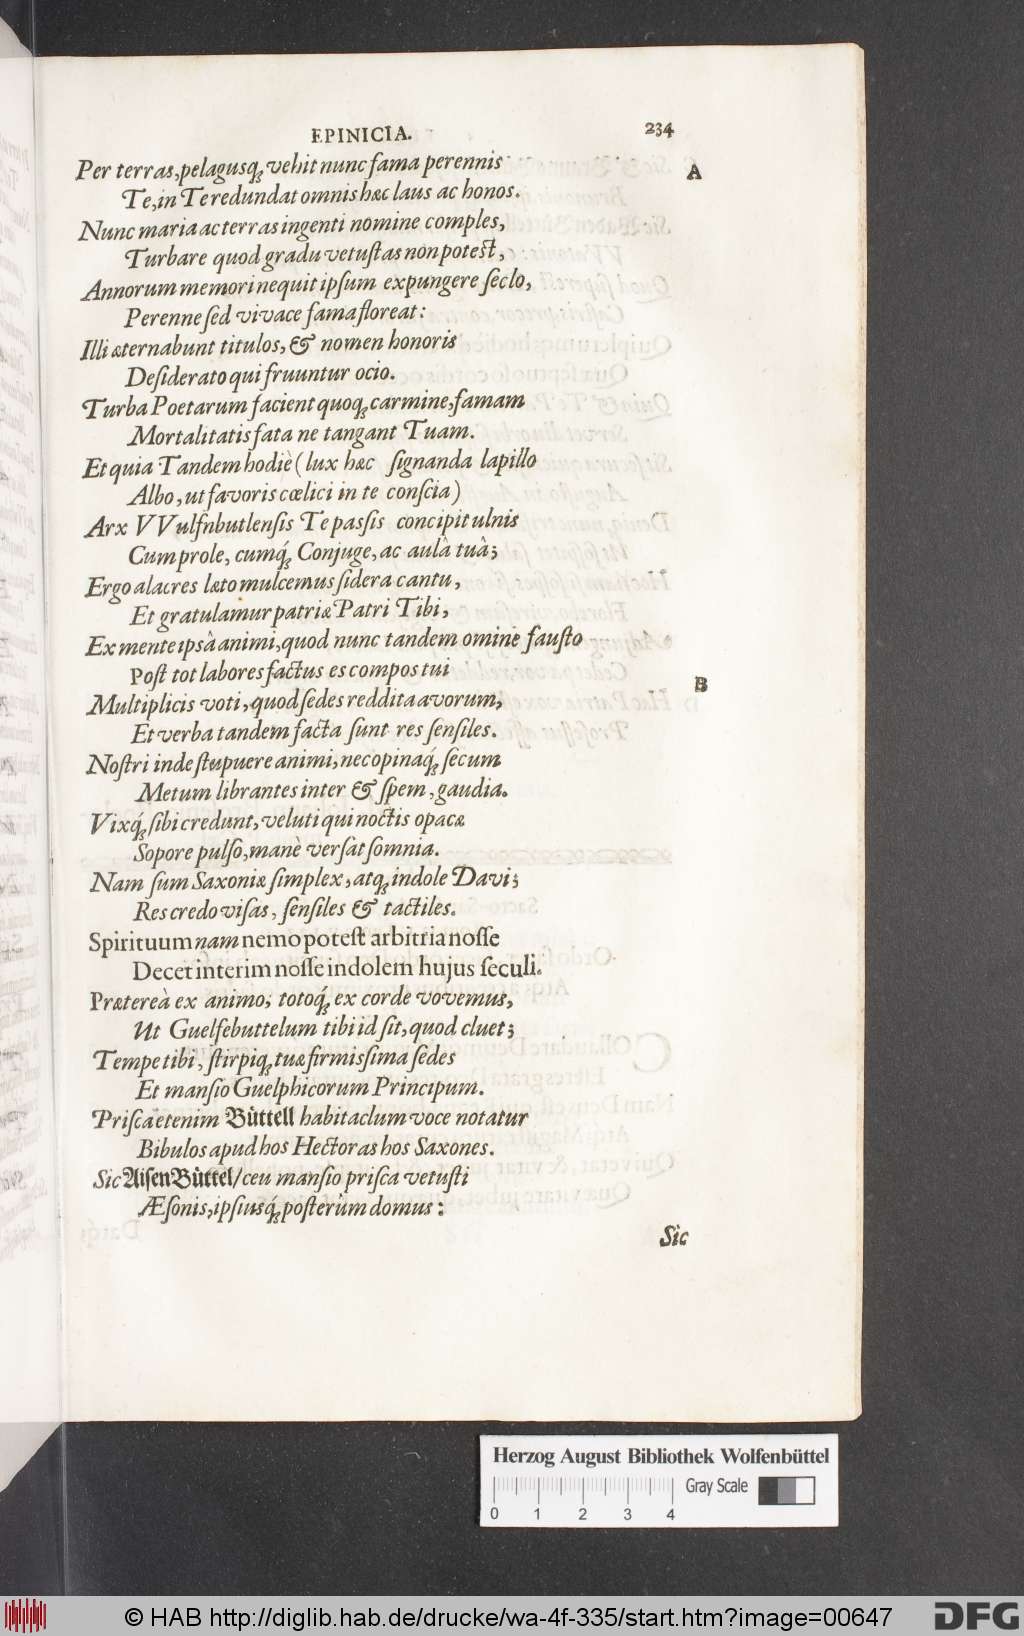 EPINICIA. 234
Per terras, pelagusq́; vehit nunc fama perennis A
Te, in Te redundat omnis hæc laus ac honos.
Nunc maria ac terras ingenti nomine comples,
Turbare quod gradu vetuſtas non poteſt,
Annorum memori nequit ipſum expungere ſeclo,
Perenne ſed vivace fama floreat:
Illi æternabunt titulos, & nomen honoris
Deſiderato qui fruuntur ocio.
Turba Poetarum facient quoq; carmine, famam
Mortalitatis fata ne tangant Tuam.
Et quia Tandem hodiè (lux hæc ſignanda lapillo
Albo, ut favoris cœlici in te conſcia)
Arx VVulfnbutlenſis Te paſſis concipit ulnis
Cum prole, cumq́; Conjuge, ac aulâ tuâ;
Ergo alacres læto mulcemus ſidera cantu,
Et gratulamur patriæ Patri Tibi,
Ex mente ipsâ animi, quod nunc tandem omine fauſto
Poſt tot labores factus es compos tui
Multiplicis voti, quod ſedes reddita avorum, B
Et verba tandem facta ſunt res ſenſiles.
Noſtri inde ſtupuere animi, nec opinaq́; ſecum
Metum librantes inter & ſpem, gaudia.
Vixq́; ſibi credunt, veluti qui noctis opacæ
Sopore pulſo, manè verſât ſomnia.
Nam ſum Saxoniæ ſimplex, atq; indole Davi;
Res credo viſas, ſenſiles & tactiles.
Spirituum nam nemo poteſt arbitria noſſe
Decet interim noſſe indolem hujus ſeculi.
Prætereà ex animo, totoq́; ex corde vovemus,
Ut Guelfebuttelum tibi id ſit, quod cluet;
Tempe tibi, ſtirpiq; tuæ firmiſſima ſedes
Et manſio Guelphicorum Principum.
Priſca etenim Büttell habitaclum voce notatur
Bibulos apud hos Hectoras hos Saxones.
Sic AiſenBüttel/ ceu manſio priſca vetuſti
Æſonis, ipſiusq́; poſterûm domus:
Sic
Herzog August Bibliothek Wolfenbüttel
Gray Scale
0 1 2 3 4
© HAB http://diglib.hab.de/drucke/wa-4f-335/start.htm?image=00647
DFG